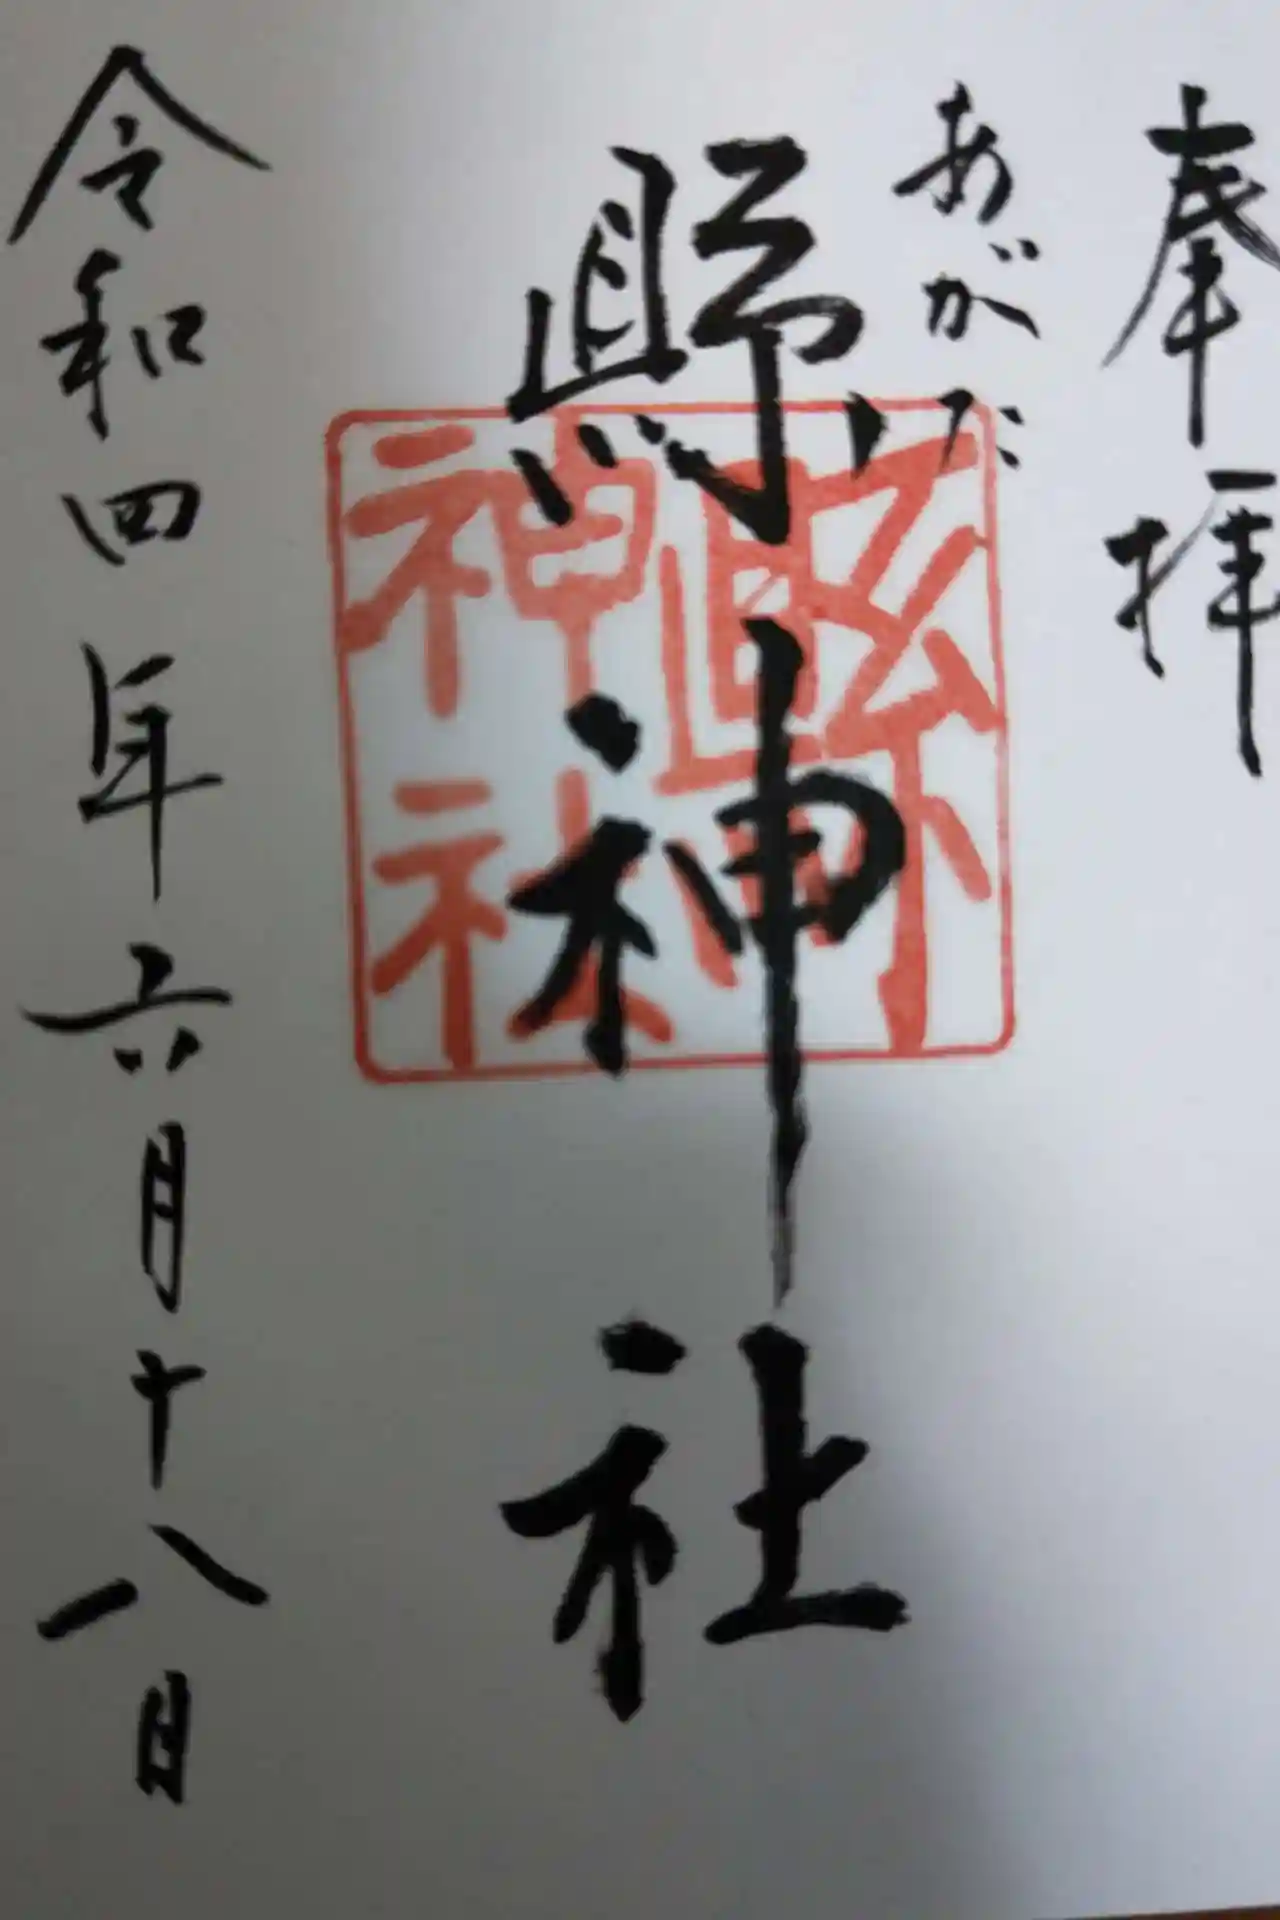 奉拝
あがだ
縣神社
縣
神社
令和四年六月十八日